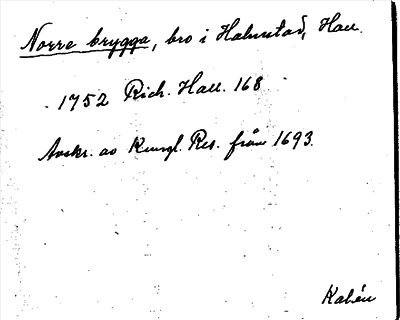 Norre brygga, bro i Halmstad, Hall.
1752 Rich. Hall. 168
Avskr. av Kungl. Res. från 1693.
Kalén